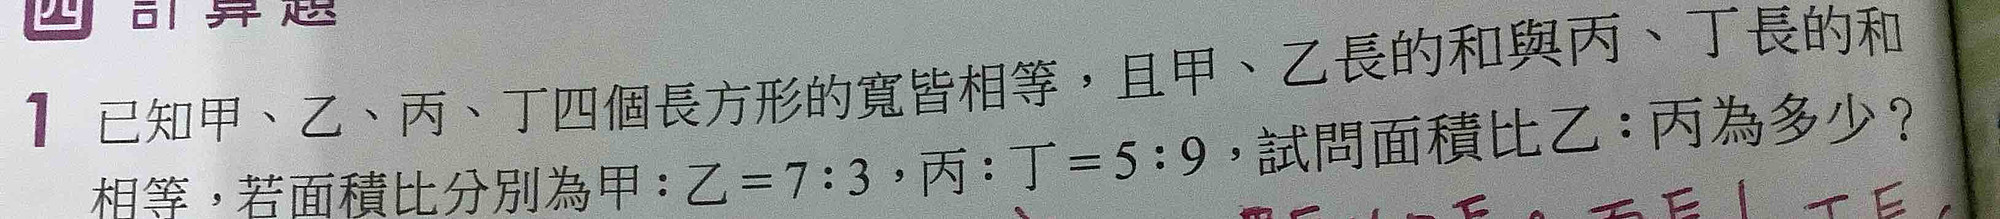 四 計算題
1 已知甲、乙、丙、丁四個長方形的寬皆相等，且甲、乙長的和與丙、丁長的和
相等，若面積比分別為甲：乙＝7：3，丙：丁＝5：9，試問面積比乙：丙為多少？